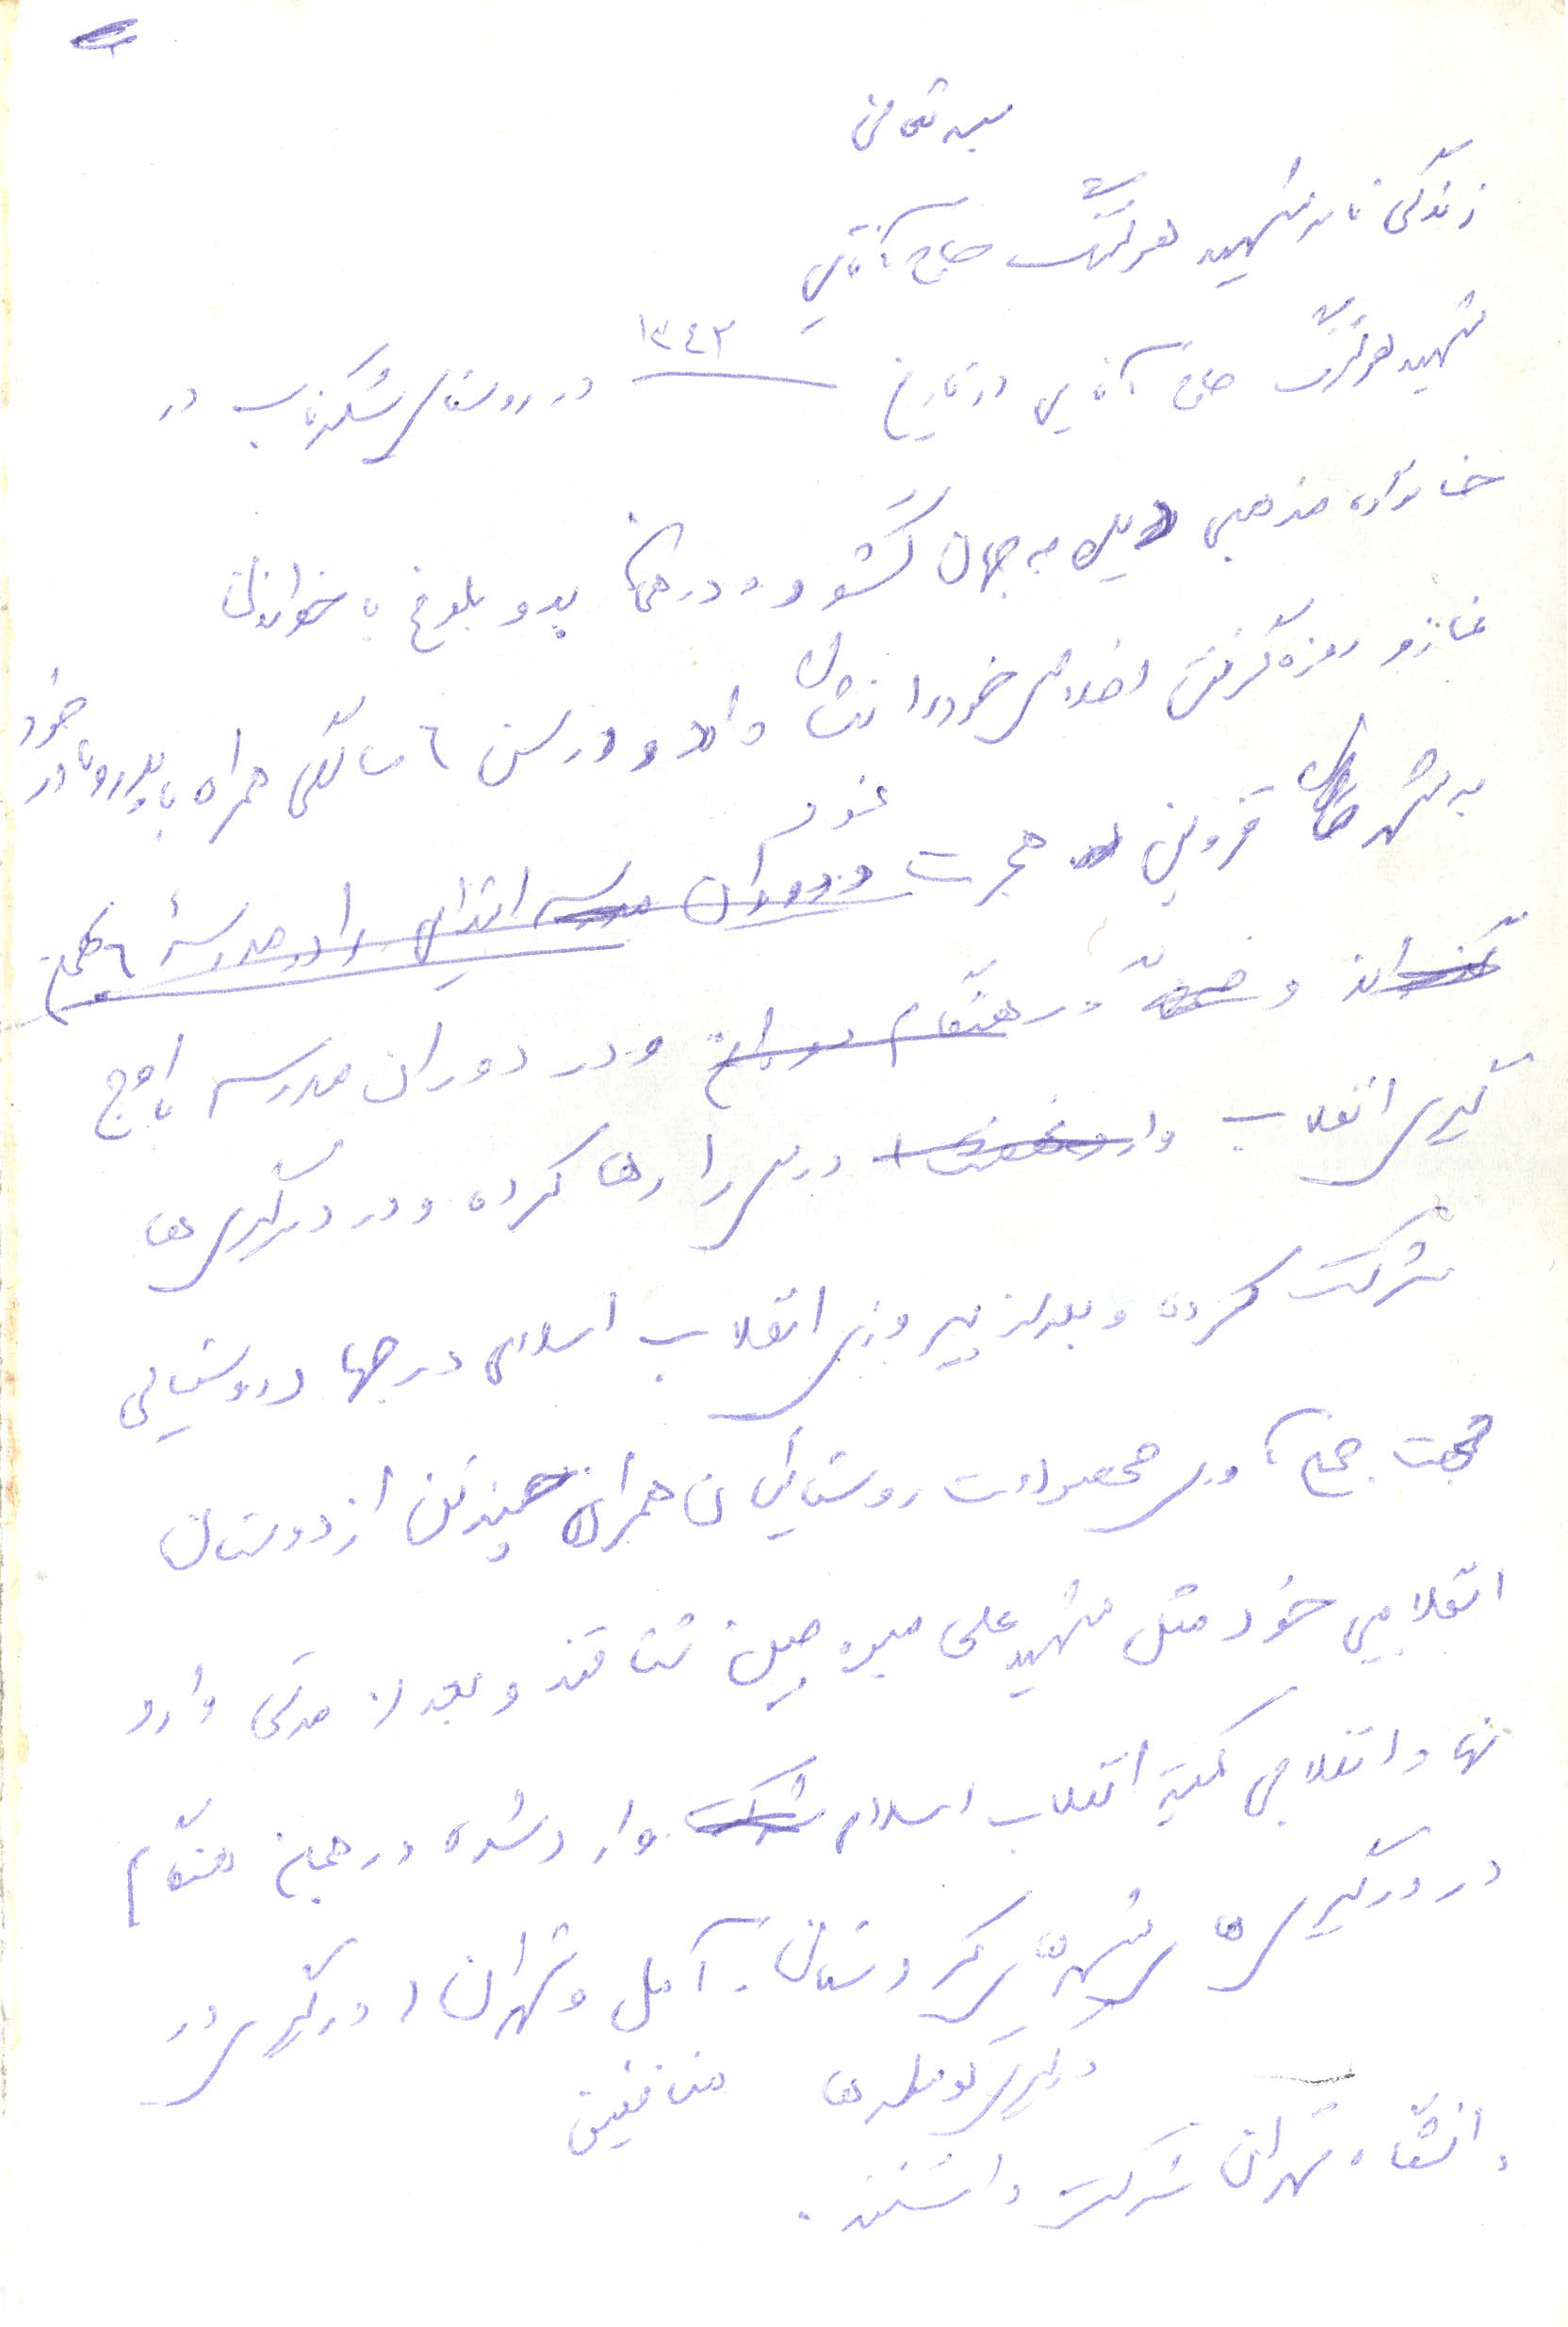 بسمه تعالی
زندگی نامه شهید هوشنگ حاج آقایی
شهید هوشنگ حاج آقایی در تاریخ ۱۳٤۳ در روستای شکرناب در
خانواده مذهبی دیده به جهان گشود و در همان بدو بلوغ با خواندن
نماز و روزه گرفتن اخلاص خود را نشان داد و در سن ٦ سالگی همراه با پدر و مادر خود
به شهر قزوین هجرت نمود دوران مدرسه ابتدایی را در مدرسهٔ
گذراند و در هنگام و در دوران مدرسه با اوج
گیری انقلاب وارد درس را رها کرده و در درگیری ها
شرکت کرده و بعد از پیروزی انقلاب اسلامی در جهاد روستایی
جهت جمع آوری محصولات روستائیان همراه چند تن از دوستان
انقلابی خود مثل شهید علی میره جینی شتافتند و بعد از مدتی وارد
نهاد انقلابی کمیته انقلاب اسلامی شرکت وارد شده در همین هنگام
در درگیری ها شهرهای کردستان، آمل و تهران درگیری در
درگیری کومله ها منافقین
دانشگاه تهران شرکت داشتند.